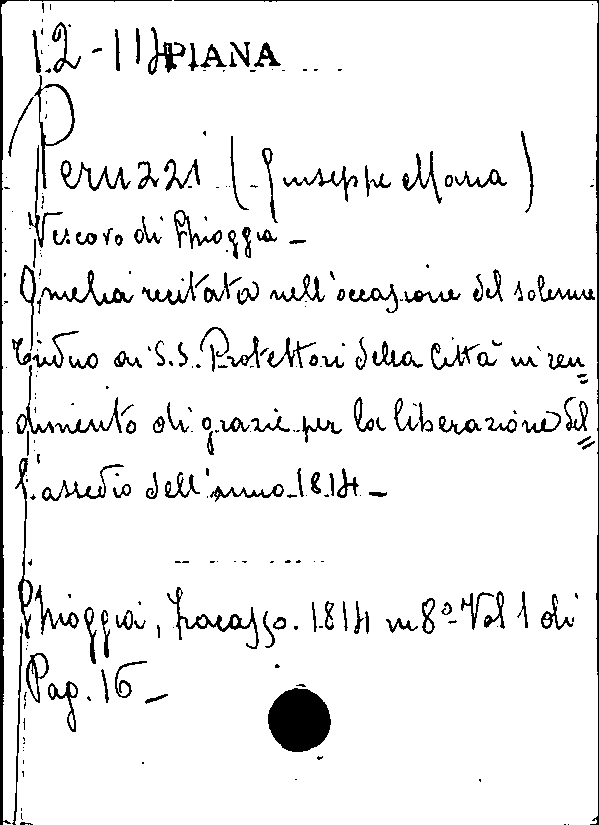 12-11 PIANA
Peruzzi (Giuseppe Maria)
Vescovo di Chioggia -
Omelia recitata nell'occasione del solenne
Triduo ai S.S. Protettori della Città in ren=
dimento di grazie per la liberazione del=
l'assedio dell'anno 1814 -
Chioggia, 1814 in 8° Vol 1 di
Pag. 16 -